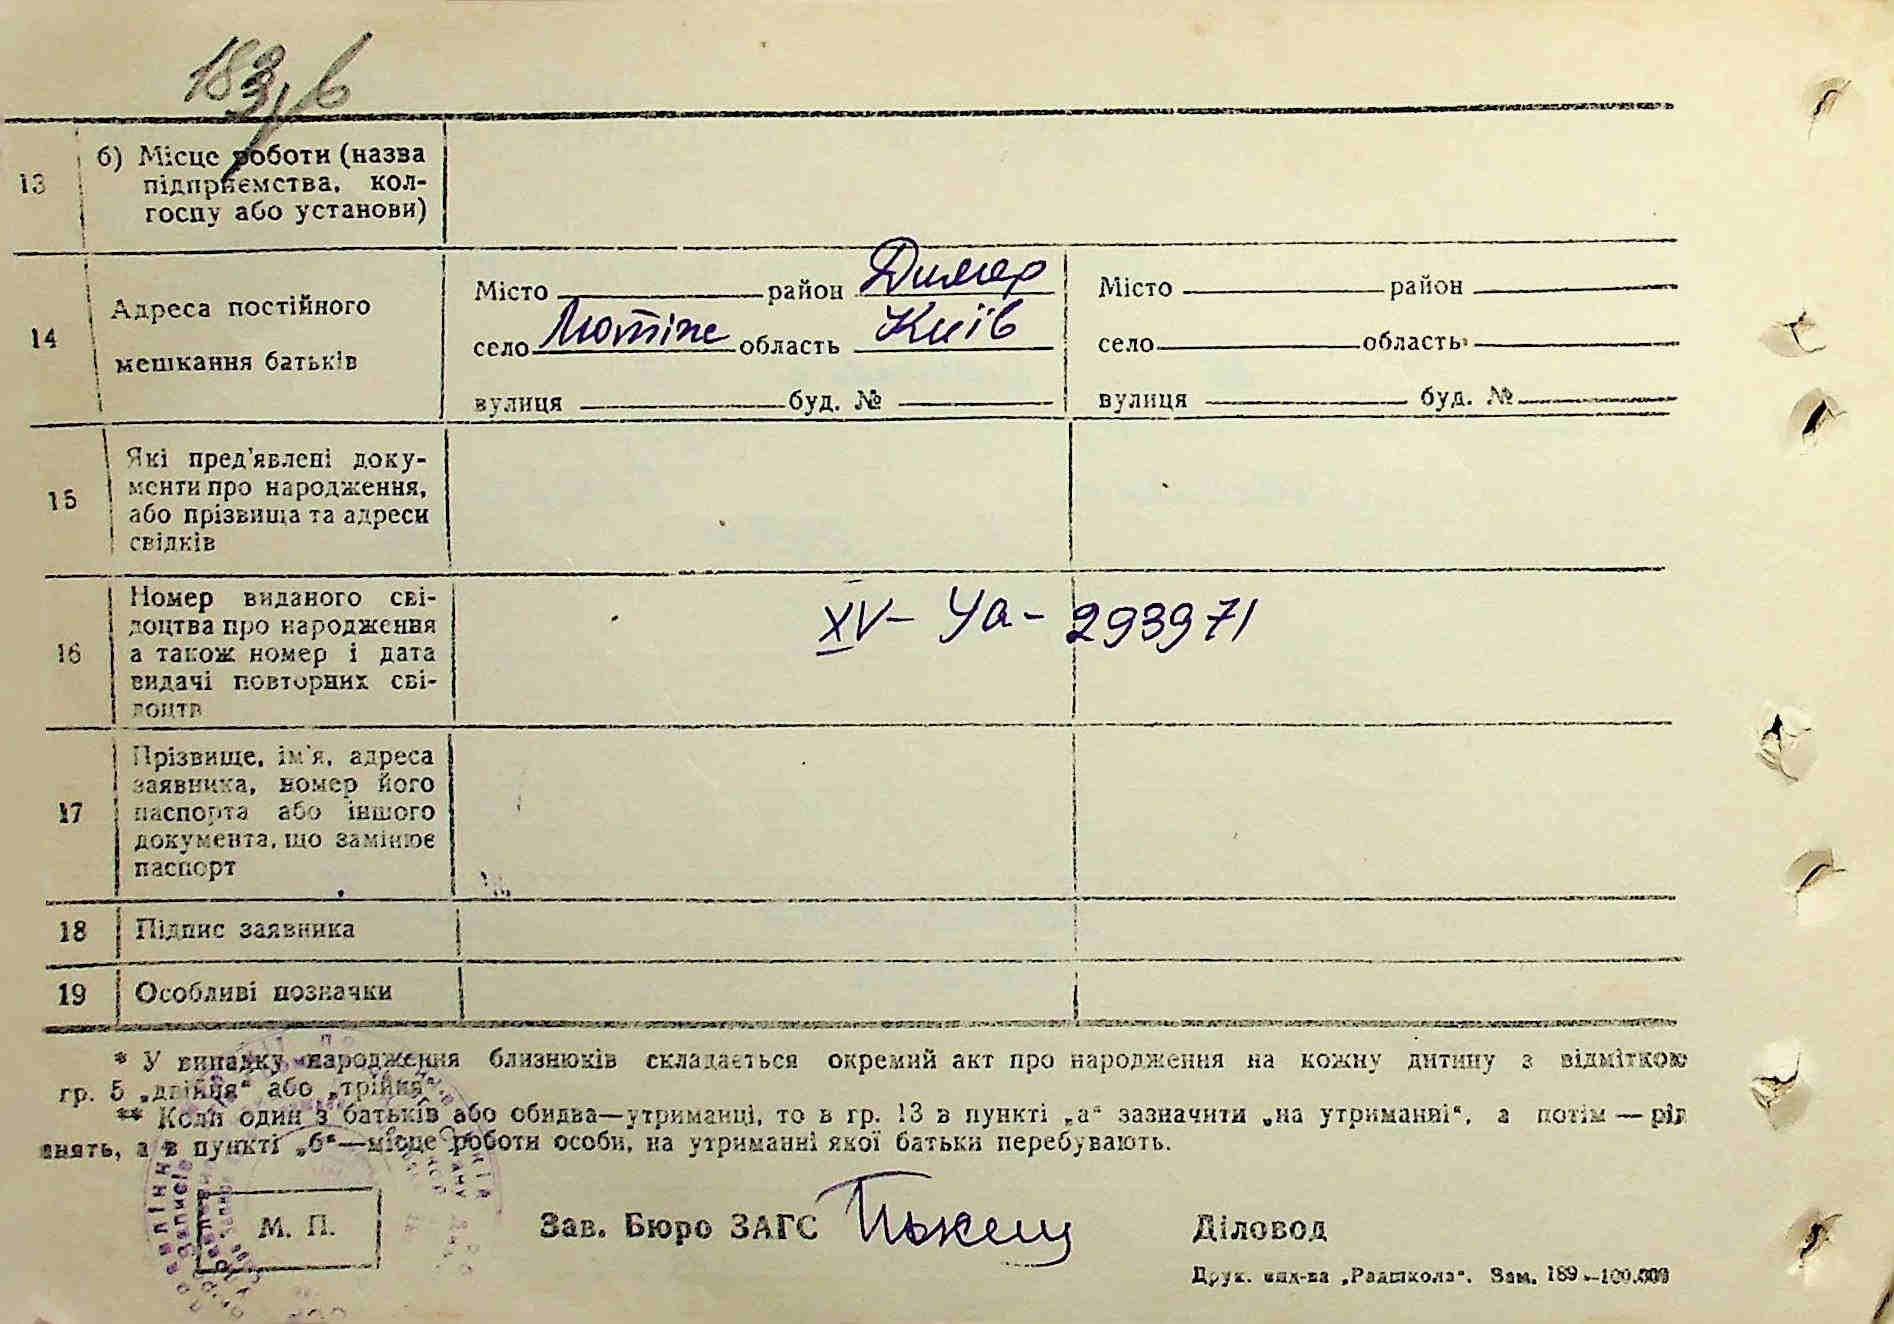 13
б) Місце роботи (назва
підприємства, кол-
госпу або установи)
14
Адреса постійного
мешкання батьків
Місто район Димер
село Лютіж область Київ
вулиця буд. №
Місто район
село область
вулиця буд. №
15
Які пред'явлені доку-
менти про народження,
або прізвища та адреси
свідків
16
Номер виданого сві-
доцтва про народження
а також номер і дата
видачі повторних сві-
доцтв
XV- Уа- 293971
17
Прізвище, ім'я, адреса
заявника, номер його
паспорта або іншого
документа, що замінює
паспорт
18 Підпис заявника
19 Особливі позначки
* У випадку народження близнюків складається окремий акт про народження на кожну дитину з відміткою
гр. 5 „двійня“ або „трійня“.
** Коли один з батьків або обидва—утриманці, то в гр. 13 в пункті „а“ зазначити „на утриманні“, а потім —
а в пункті „б“—місце роботи особи, на утриманні якої батьки перебувають.
М. П.
Зав. Бюро ЗАГС
Діловод
Друк. вид-ва „Радшкола“. Зам. 189 —100.000